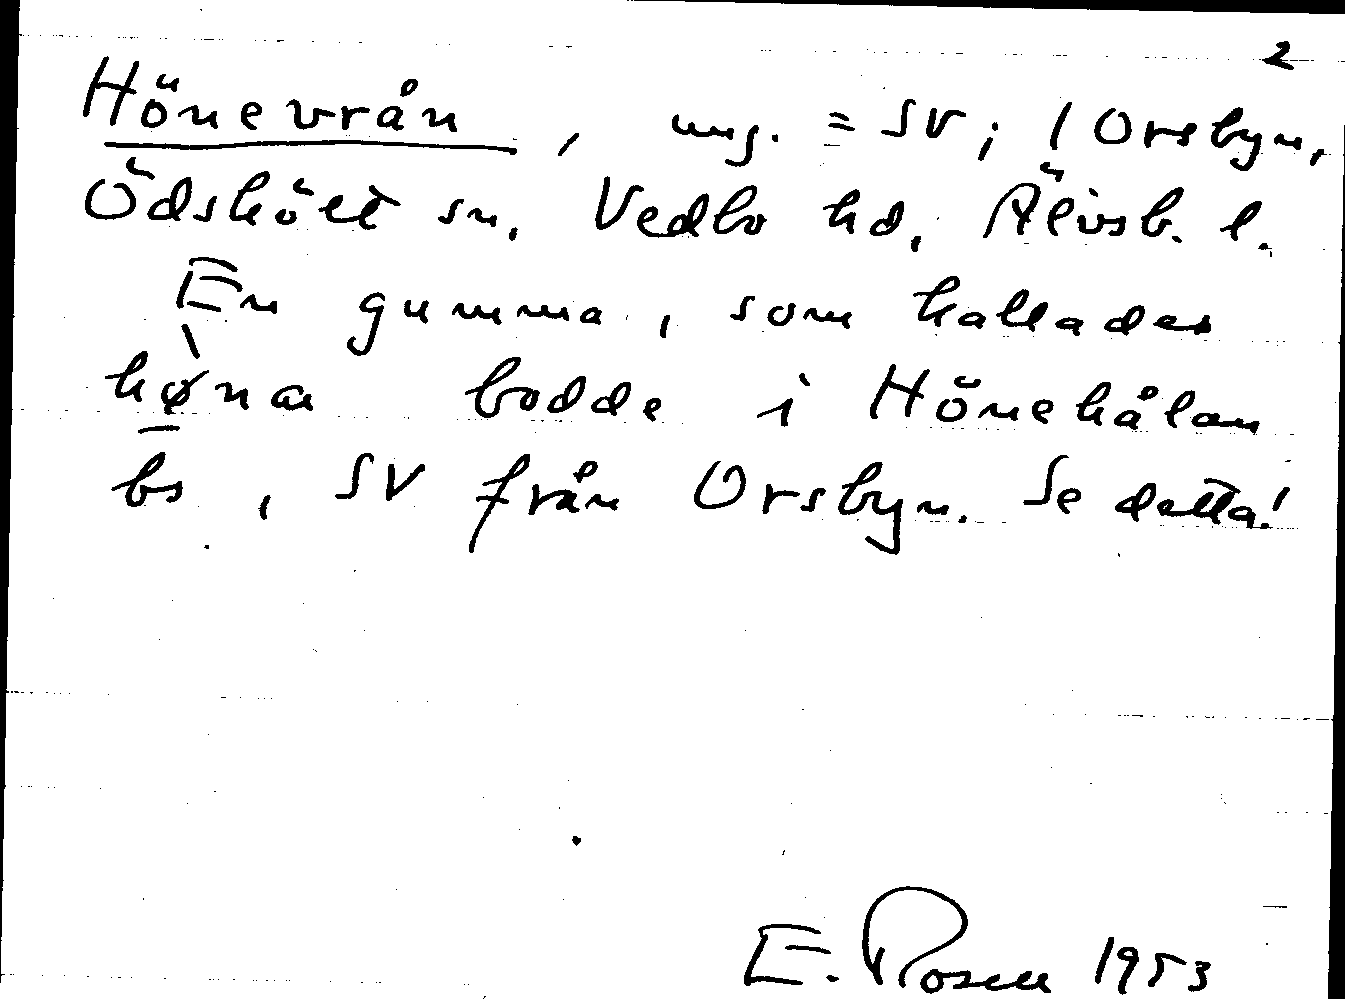 2
Hönevrån, ung. = SV, / Orsbyn,
Ödskölt sn, Vedbo hd, Älvsb. l.
En gumma, som kallades
hø̀na bodde i Hönehålan
bs, SV från Orsbyn. Se detta!
E. Rosell 1953